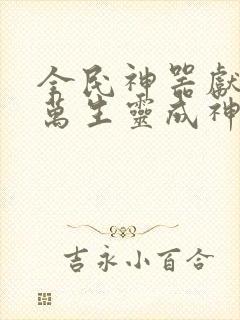 全民神器獻
萬生靈成神
吉永小百合